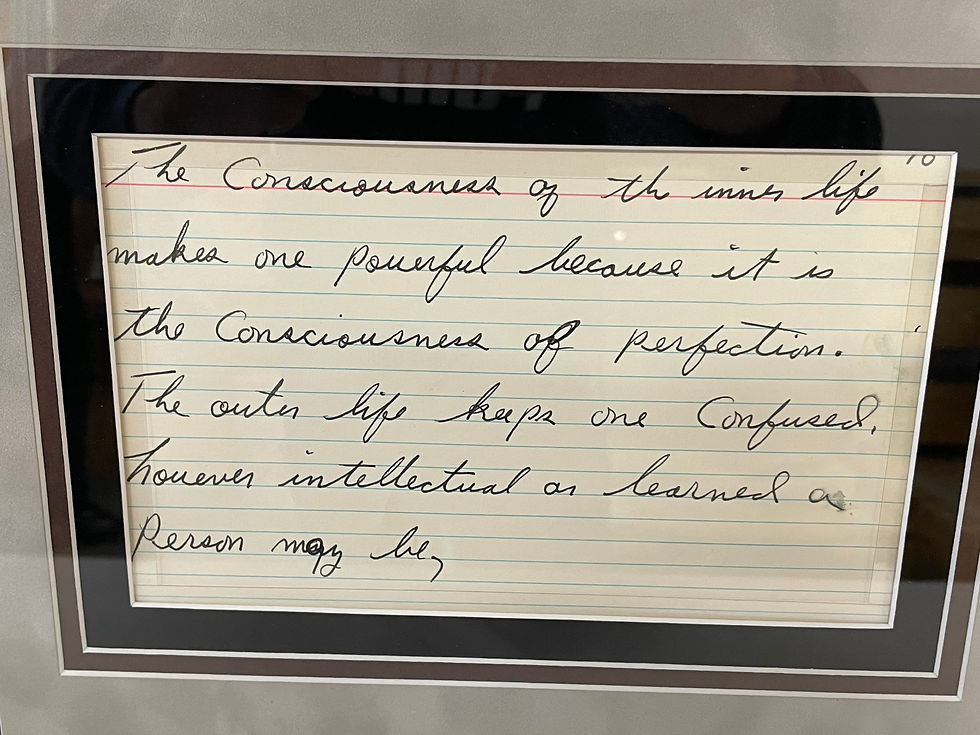 10
The Consciousness of th inner life
makes one powerful because it is
the Consciousness of perfection.
The outer life keeps one Confused,
however intellectual or learned a
Person may be,